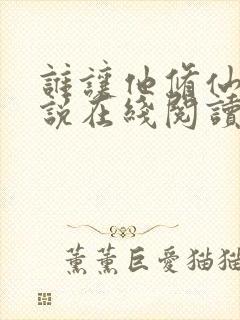 誰讓他脩仙
說在綫閱讀
薰薰巨愛猫猫